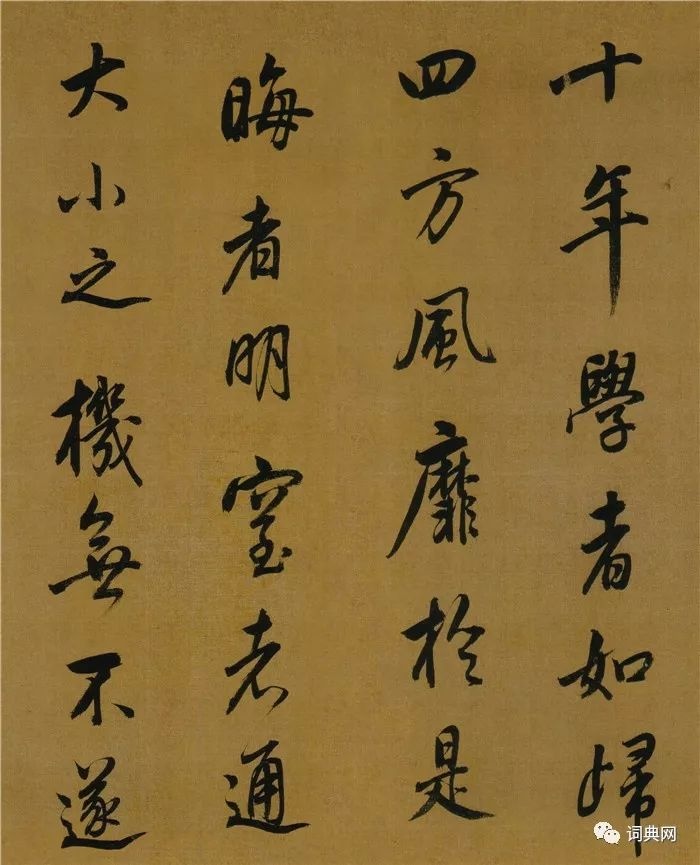 十年學者如歸
四方風靡於是
晦者明窒者通
大小之機無不遂
词典网